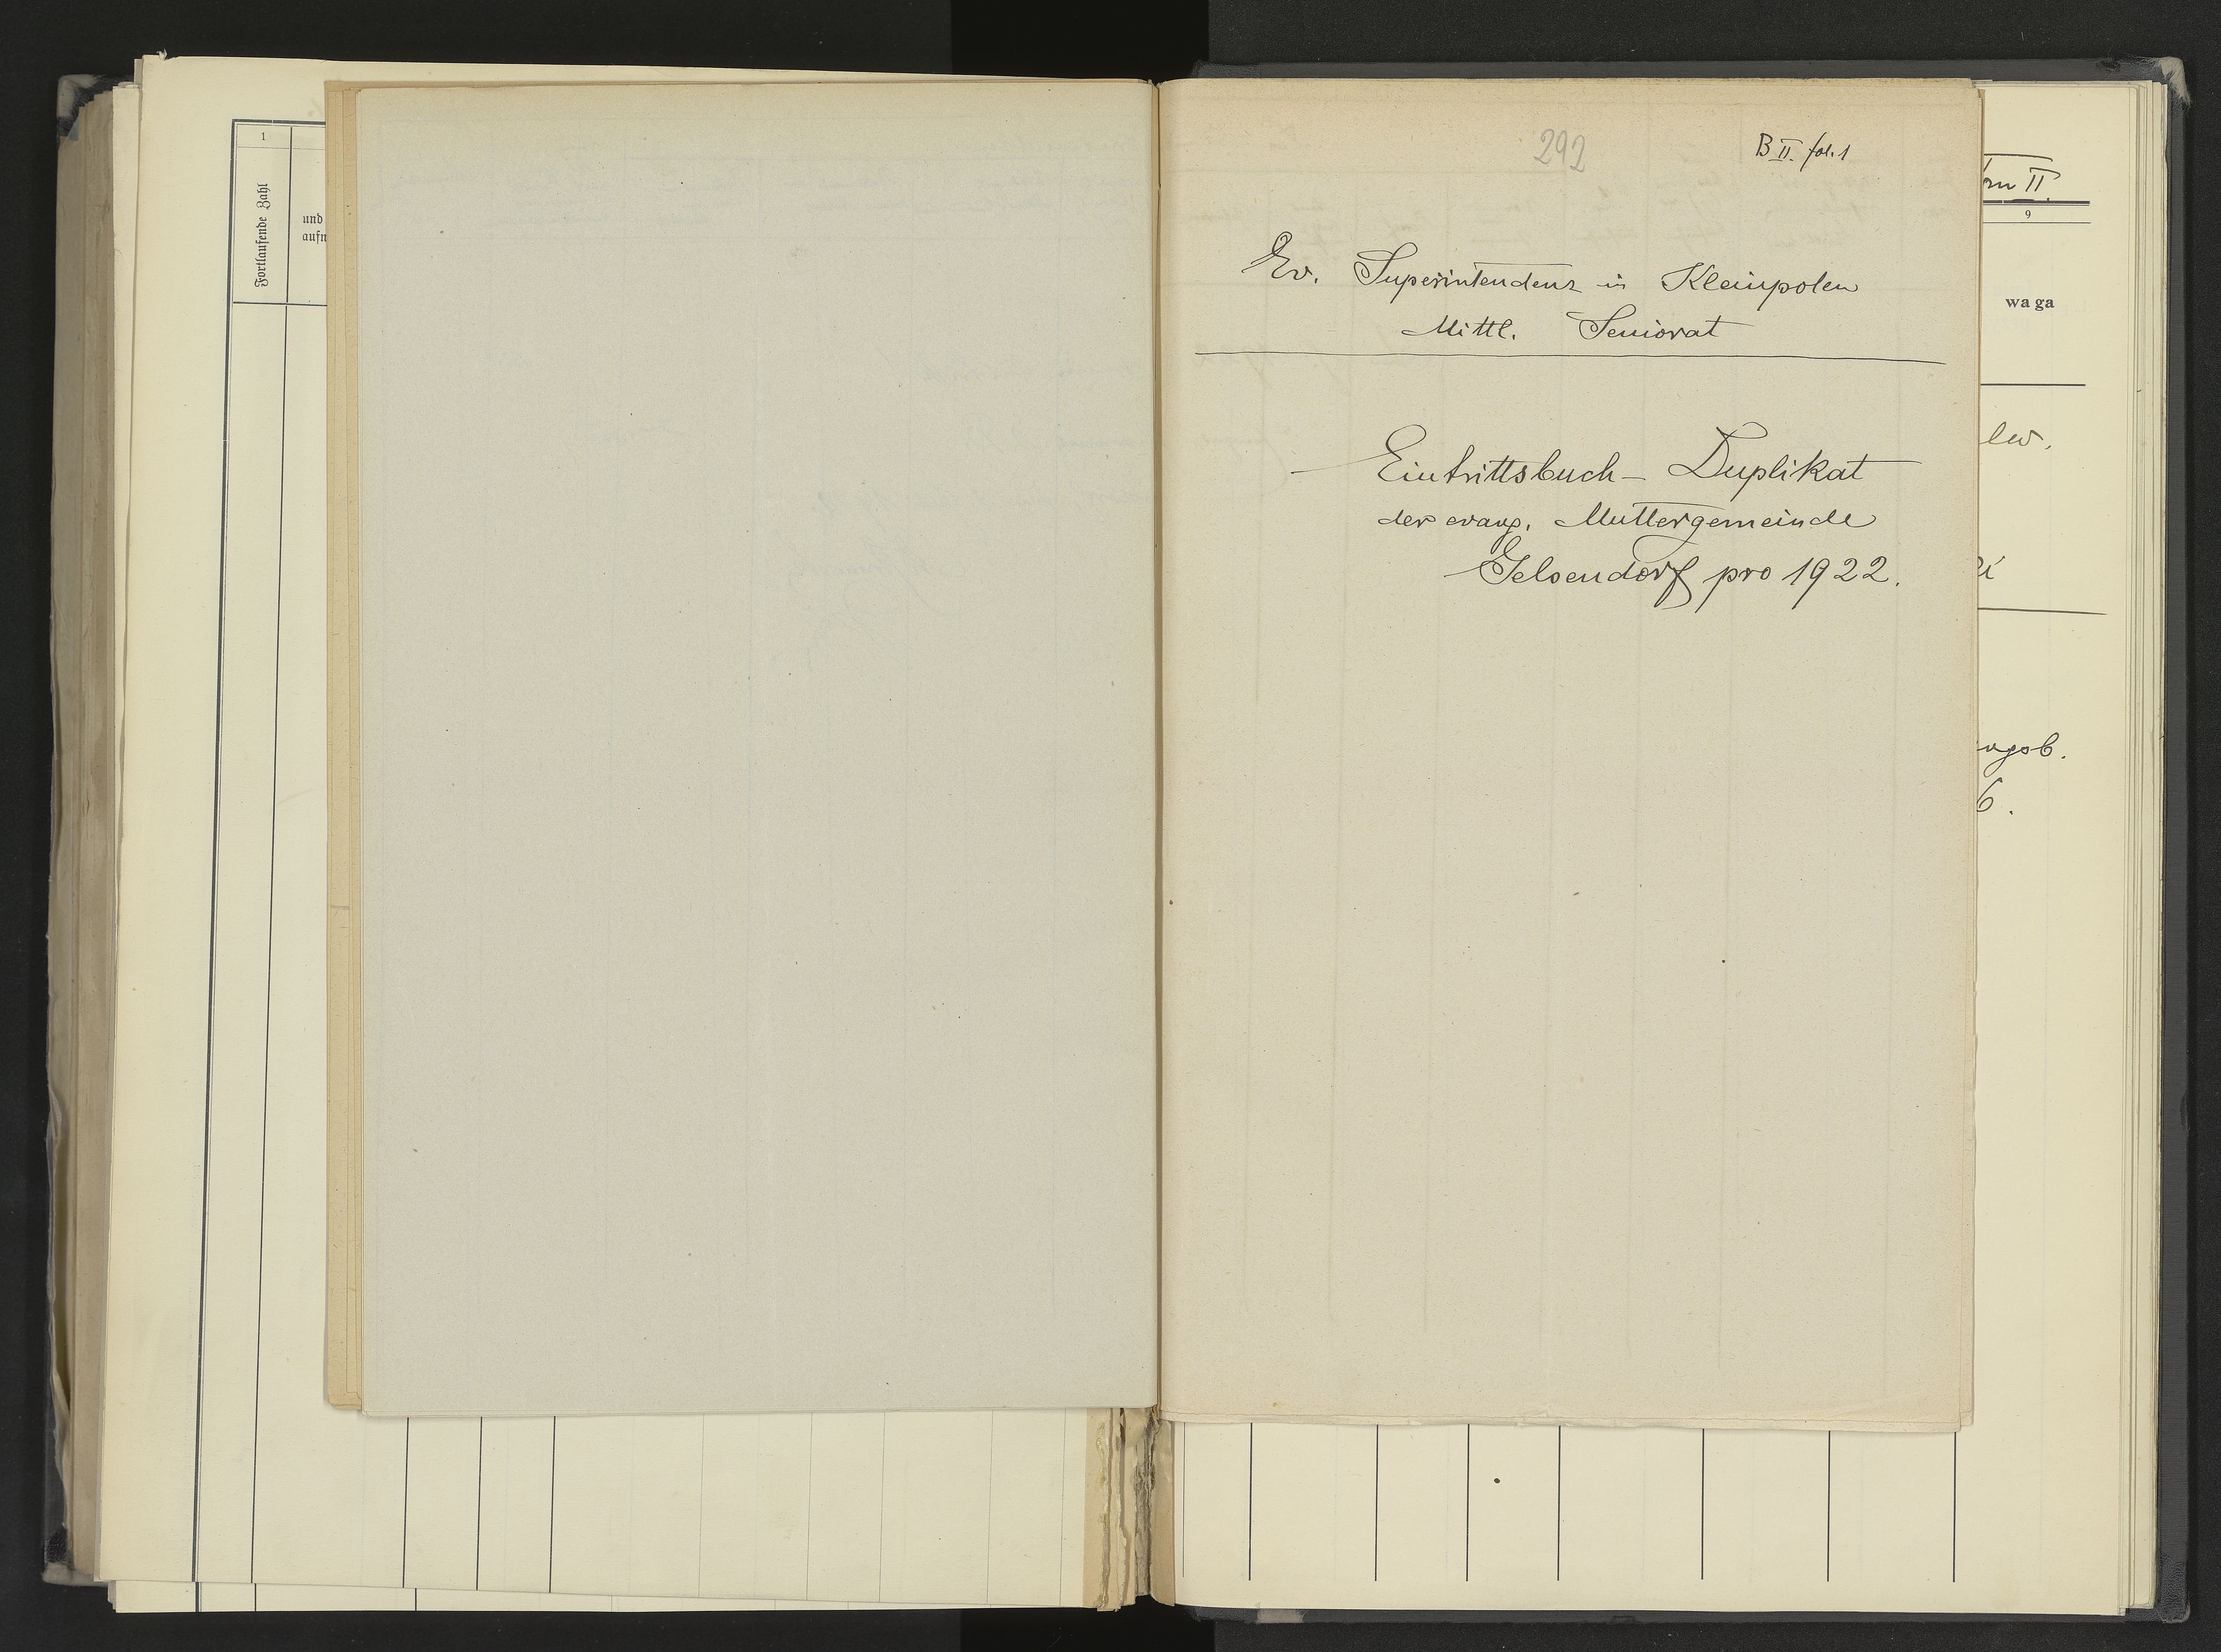 1
Fortlaufende Zahl
und
aufn
292
B II. fol. 1
Ev. Superintendenz in Kleinpolen
Mittl. Seniorat
Eintrittsbuch - Duplikat
der evang. Muttergemeinde
Gelsendorf pro 1922.
II.
9
waga
6.